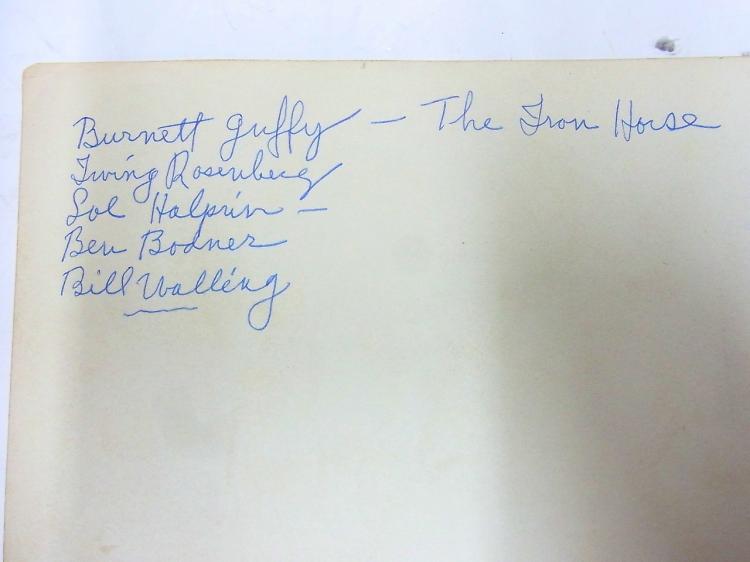 Burnett Guffy — The Iron Horse
Irving Rosenberg
Sol Halprin —
Ben Bodner
Bill Walling